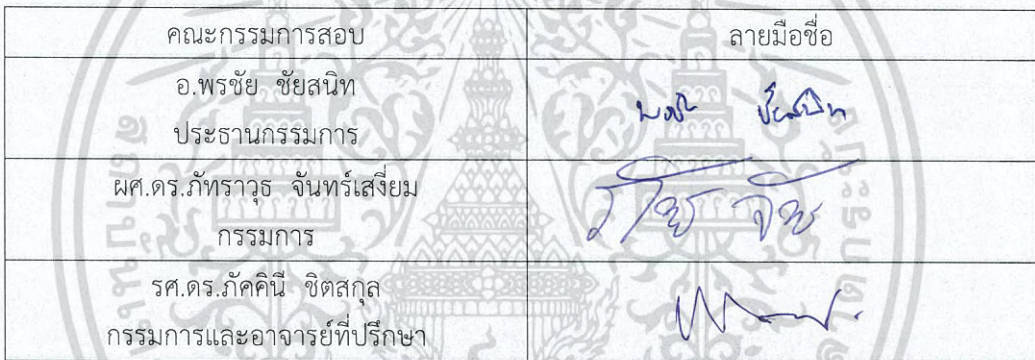 คณะกรรมการสอบ ลายมือชื่อ
อ.พรชัย ชัยสนิท
ประธานกรรมการ
ผศ.ดร.ภัทราวุธ จันทร์เสงี่ยม
กรรมการ
รศ.ดร.ภัคคินี ชิตสกุล
กรรมการและอาจารย์ที่ปรึกษา